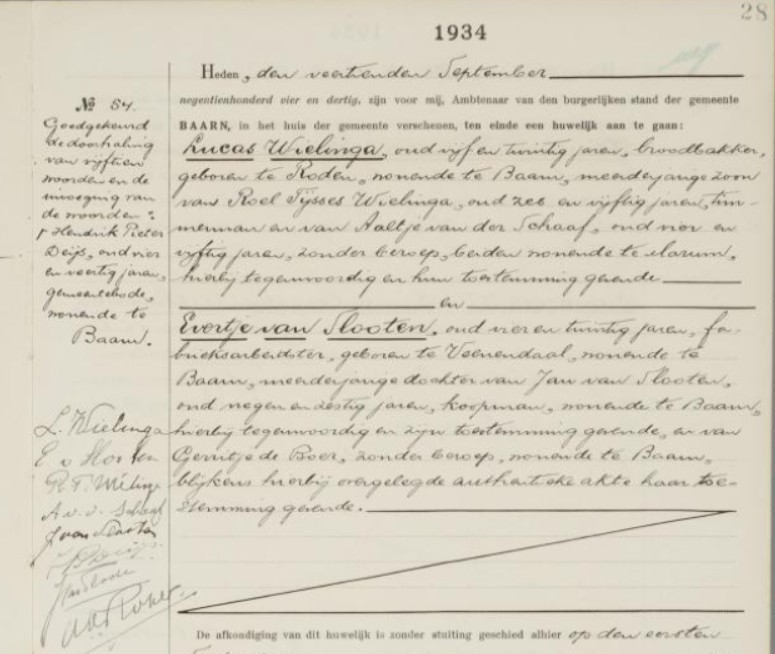 28
1934
Heden, den veertienden September
negentienhonderd vier en dertig, zijn voor mij, Ambtenaar van den burgerlijken stand der gemeente
BAARN, in het huis der gemeente verschenen, ten einde een huwelijk aan te gaan:
Lucas Wielinga, oud vijf en twintig jaren, broodbakker,
geboren te Roden, wonende te Baarn, meerderjarige zoon
van Roel Tijsses Wielinga, oud zes en vijftig jaren, tim-
merman en van Aaltje van der Schaaf, oud vier en
vijftig jaren, zonder beroep, beiden wonende te Marum,
hierbij tegenwoordig en hun toestemming gevende
en
Evertje van Slooten, oud vier en twintig jaren, fa-
brieksarbeidster, geboren te Veenendaal, wonende te
Baarn, meerderjarige dochter van Jan van Slooten,
oud negen en zestig jaren, koopman, wonende te Baarn,
hierbij tegenwoordig en zijn toestemming gevende, en van
Gerritje de Boer, zonder beroep, wonende te Baarn,
blijkens hierbij overgelegde authentieke akte haar toe-
stemming gevende.
De afkondiging van dit huwelijk is zonder stuiting geschied alhier op den eersten
№ 54.
Goedgekeurd
de doorhaling
van vijftien
woorden en de
invoeging van
de woorden:
Hendrik Pieter
Deijs, oud vier
en veertig jaren,
gemeentebode,
wonende te
Baarn.
L. Wielinga
E v Slooten
R. T. Wielinga
A v. d. Schaaf
J van Slooten